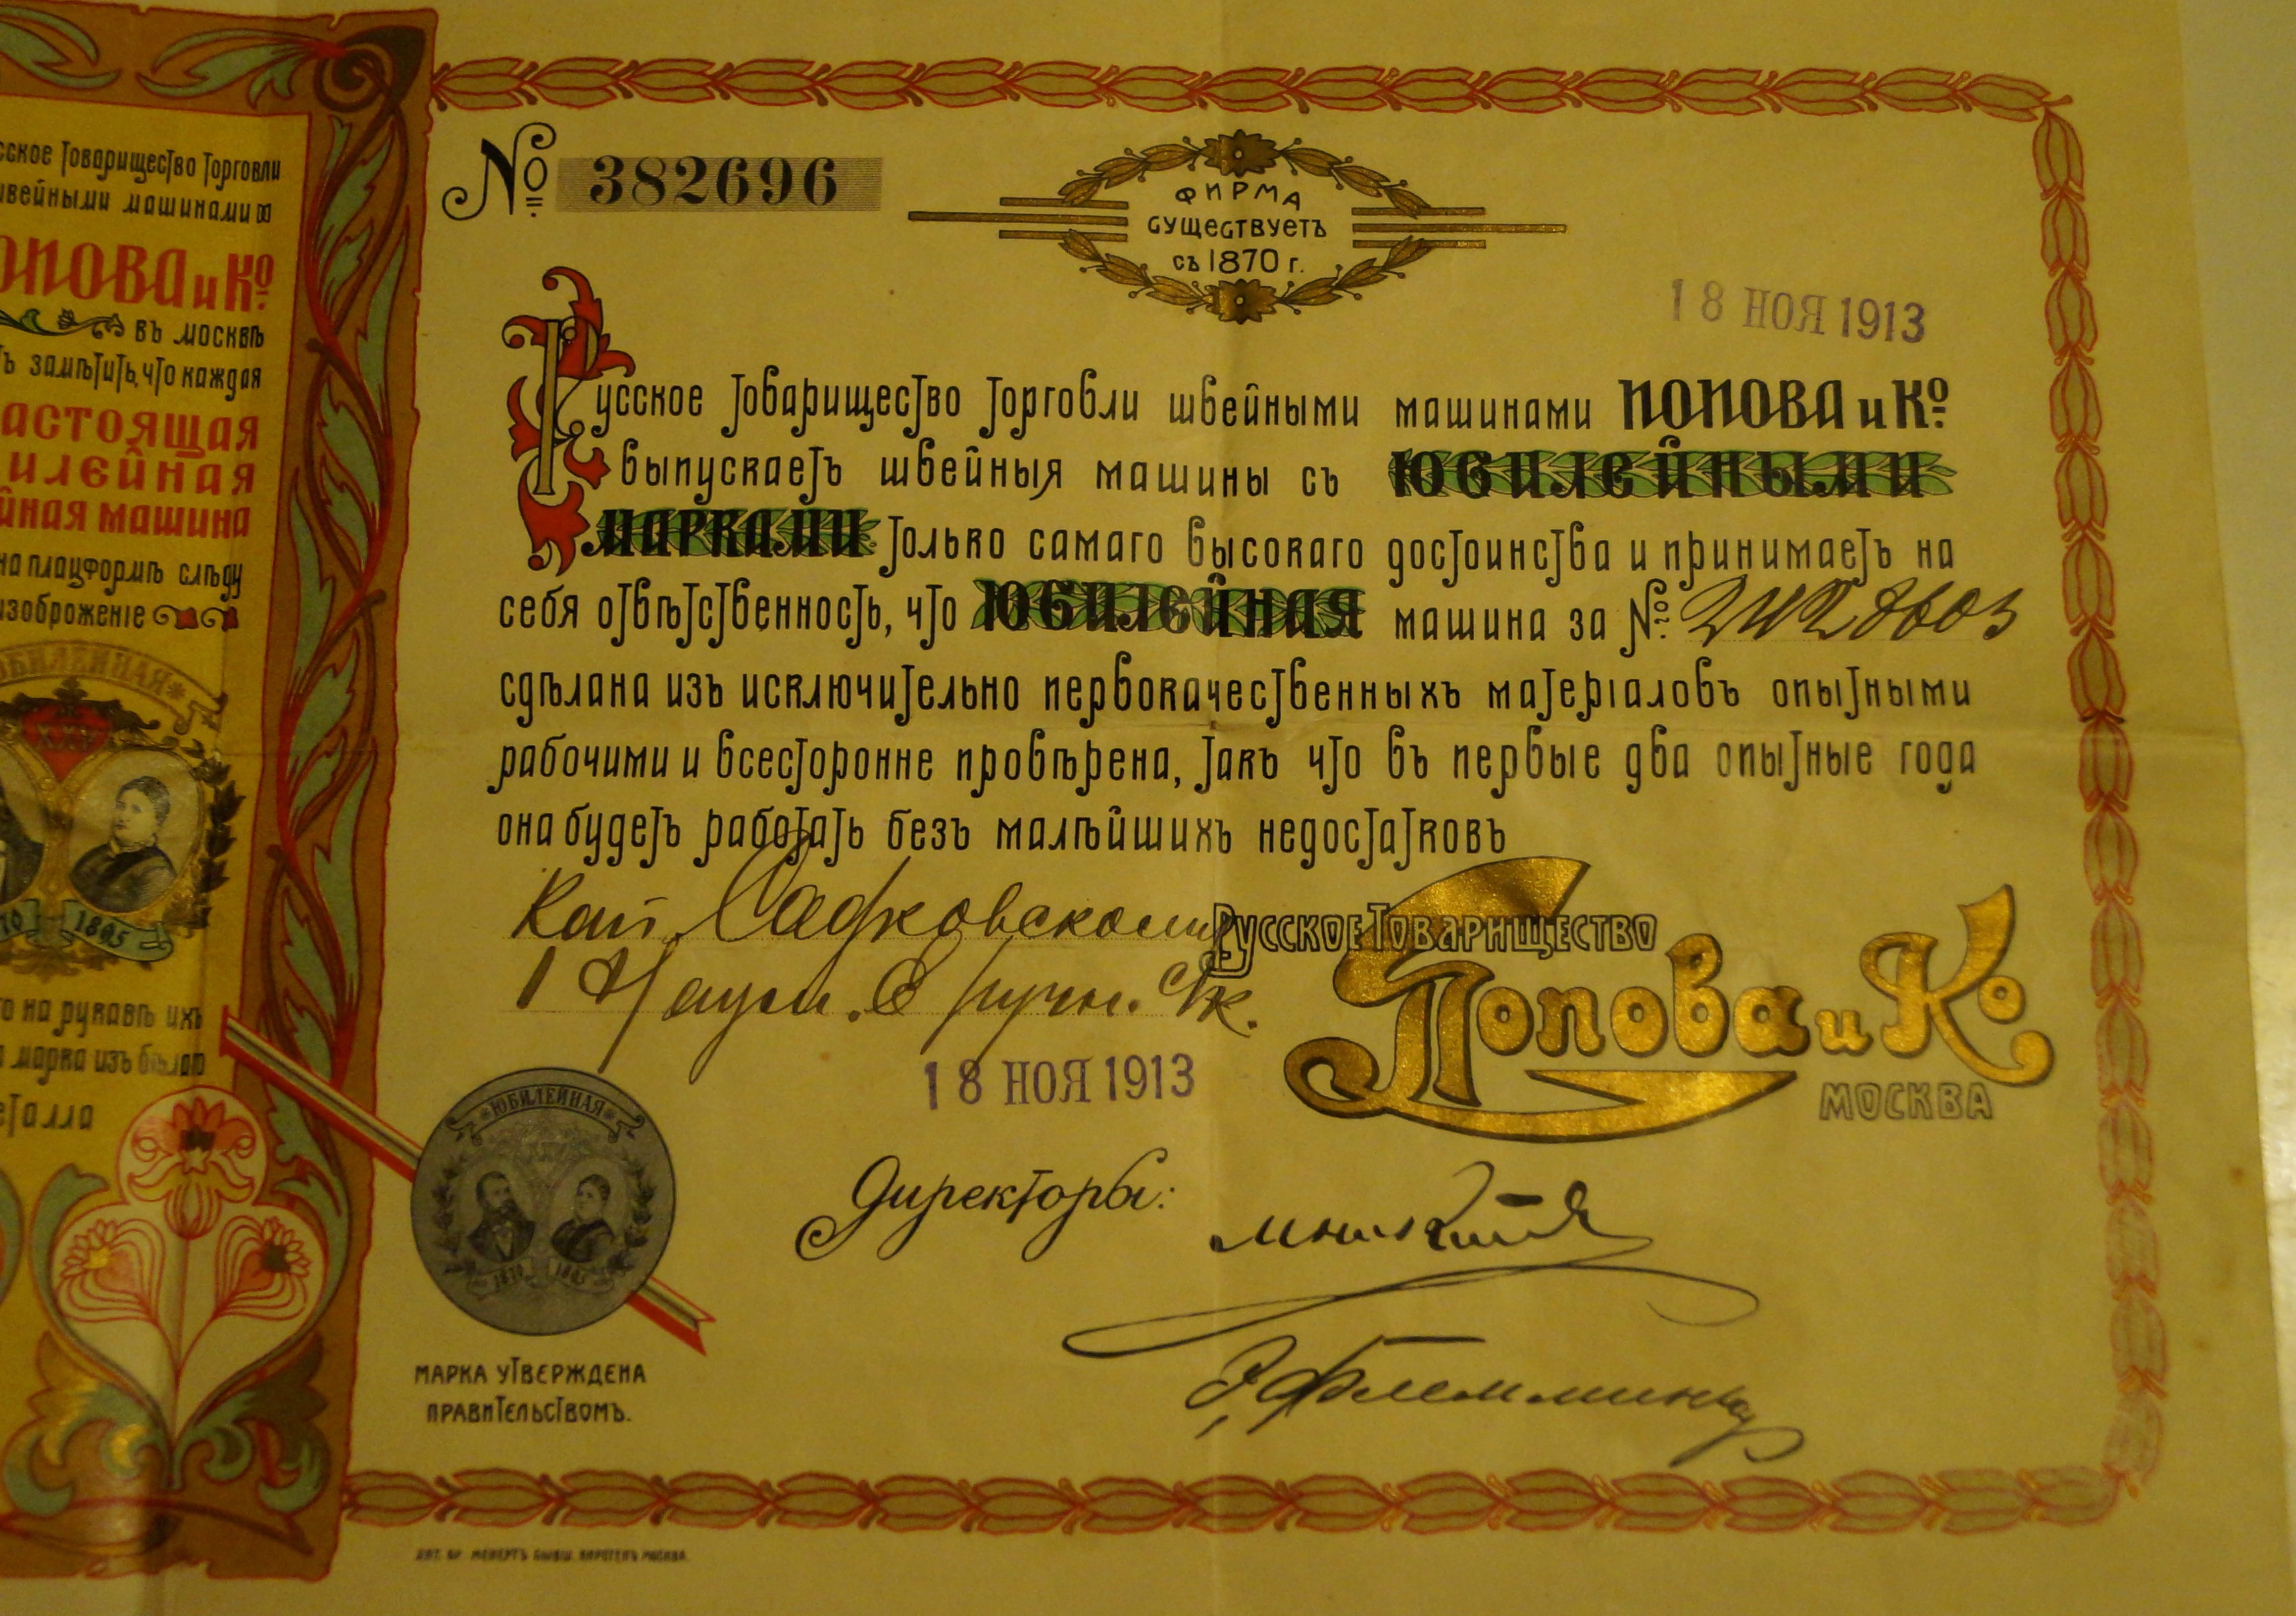 сское Товарищество Торговли
швейными машинами
ПОПОВА и Ко
въ москвѣ
ъ замѣтить, что каждая
астоящая
илейная
йная машина
на платформѣ слѣду
изоброженiе
ЮБИЛЕЙНАЯ
XXV
1895
о на рукавѣ ихъ
марка изъ бѣлаго
еталла
№ 382696
ФИРМА
СУЩЕСТВУЕТЪ
съ 1870 г.
18 НОЯ 1913
Русское Товарищество Торговли швейными машинами ПОПОВА и Ко
выпускаетъ швейныя машины съ ЮБИЛЕЙНЫМИ
МАРКАМИ только самаго высокаго достоинства и принимаетъ на
себя отвѣтственность, что ЮБИЛЕЙНАЯ машина за №
сдѣлана изъ исключительно первокачественныхъ матерiаловъ опытными
рабочими и всесторонне провѣрена, такъ что въ первые два опытные года
она будетъ работать безъ малѣйшихъ недостатковъ
Садковскому
18 НОЯ 1913
Русское Товарищество
Попова и Ко
МОСКВА
ЮБИЛЕЙНАЯ
1870 1895
Директоры:
Э. Флемминг
МАРКА УТВЕРЖДЕНА
ПРАВИТЕЛЬСТВОМЪ.